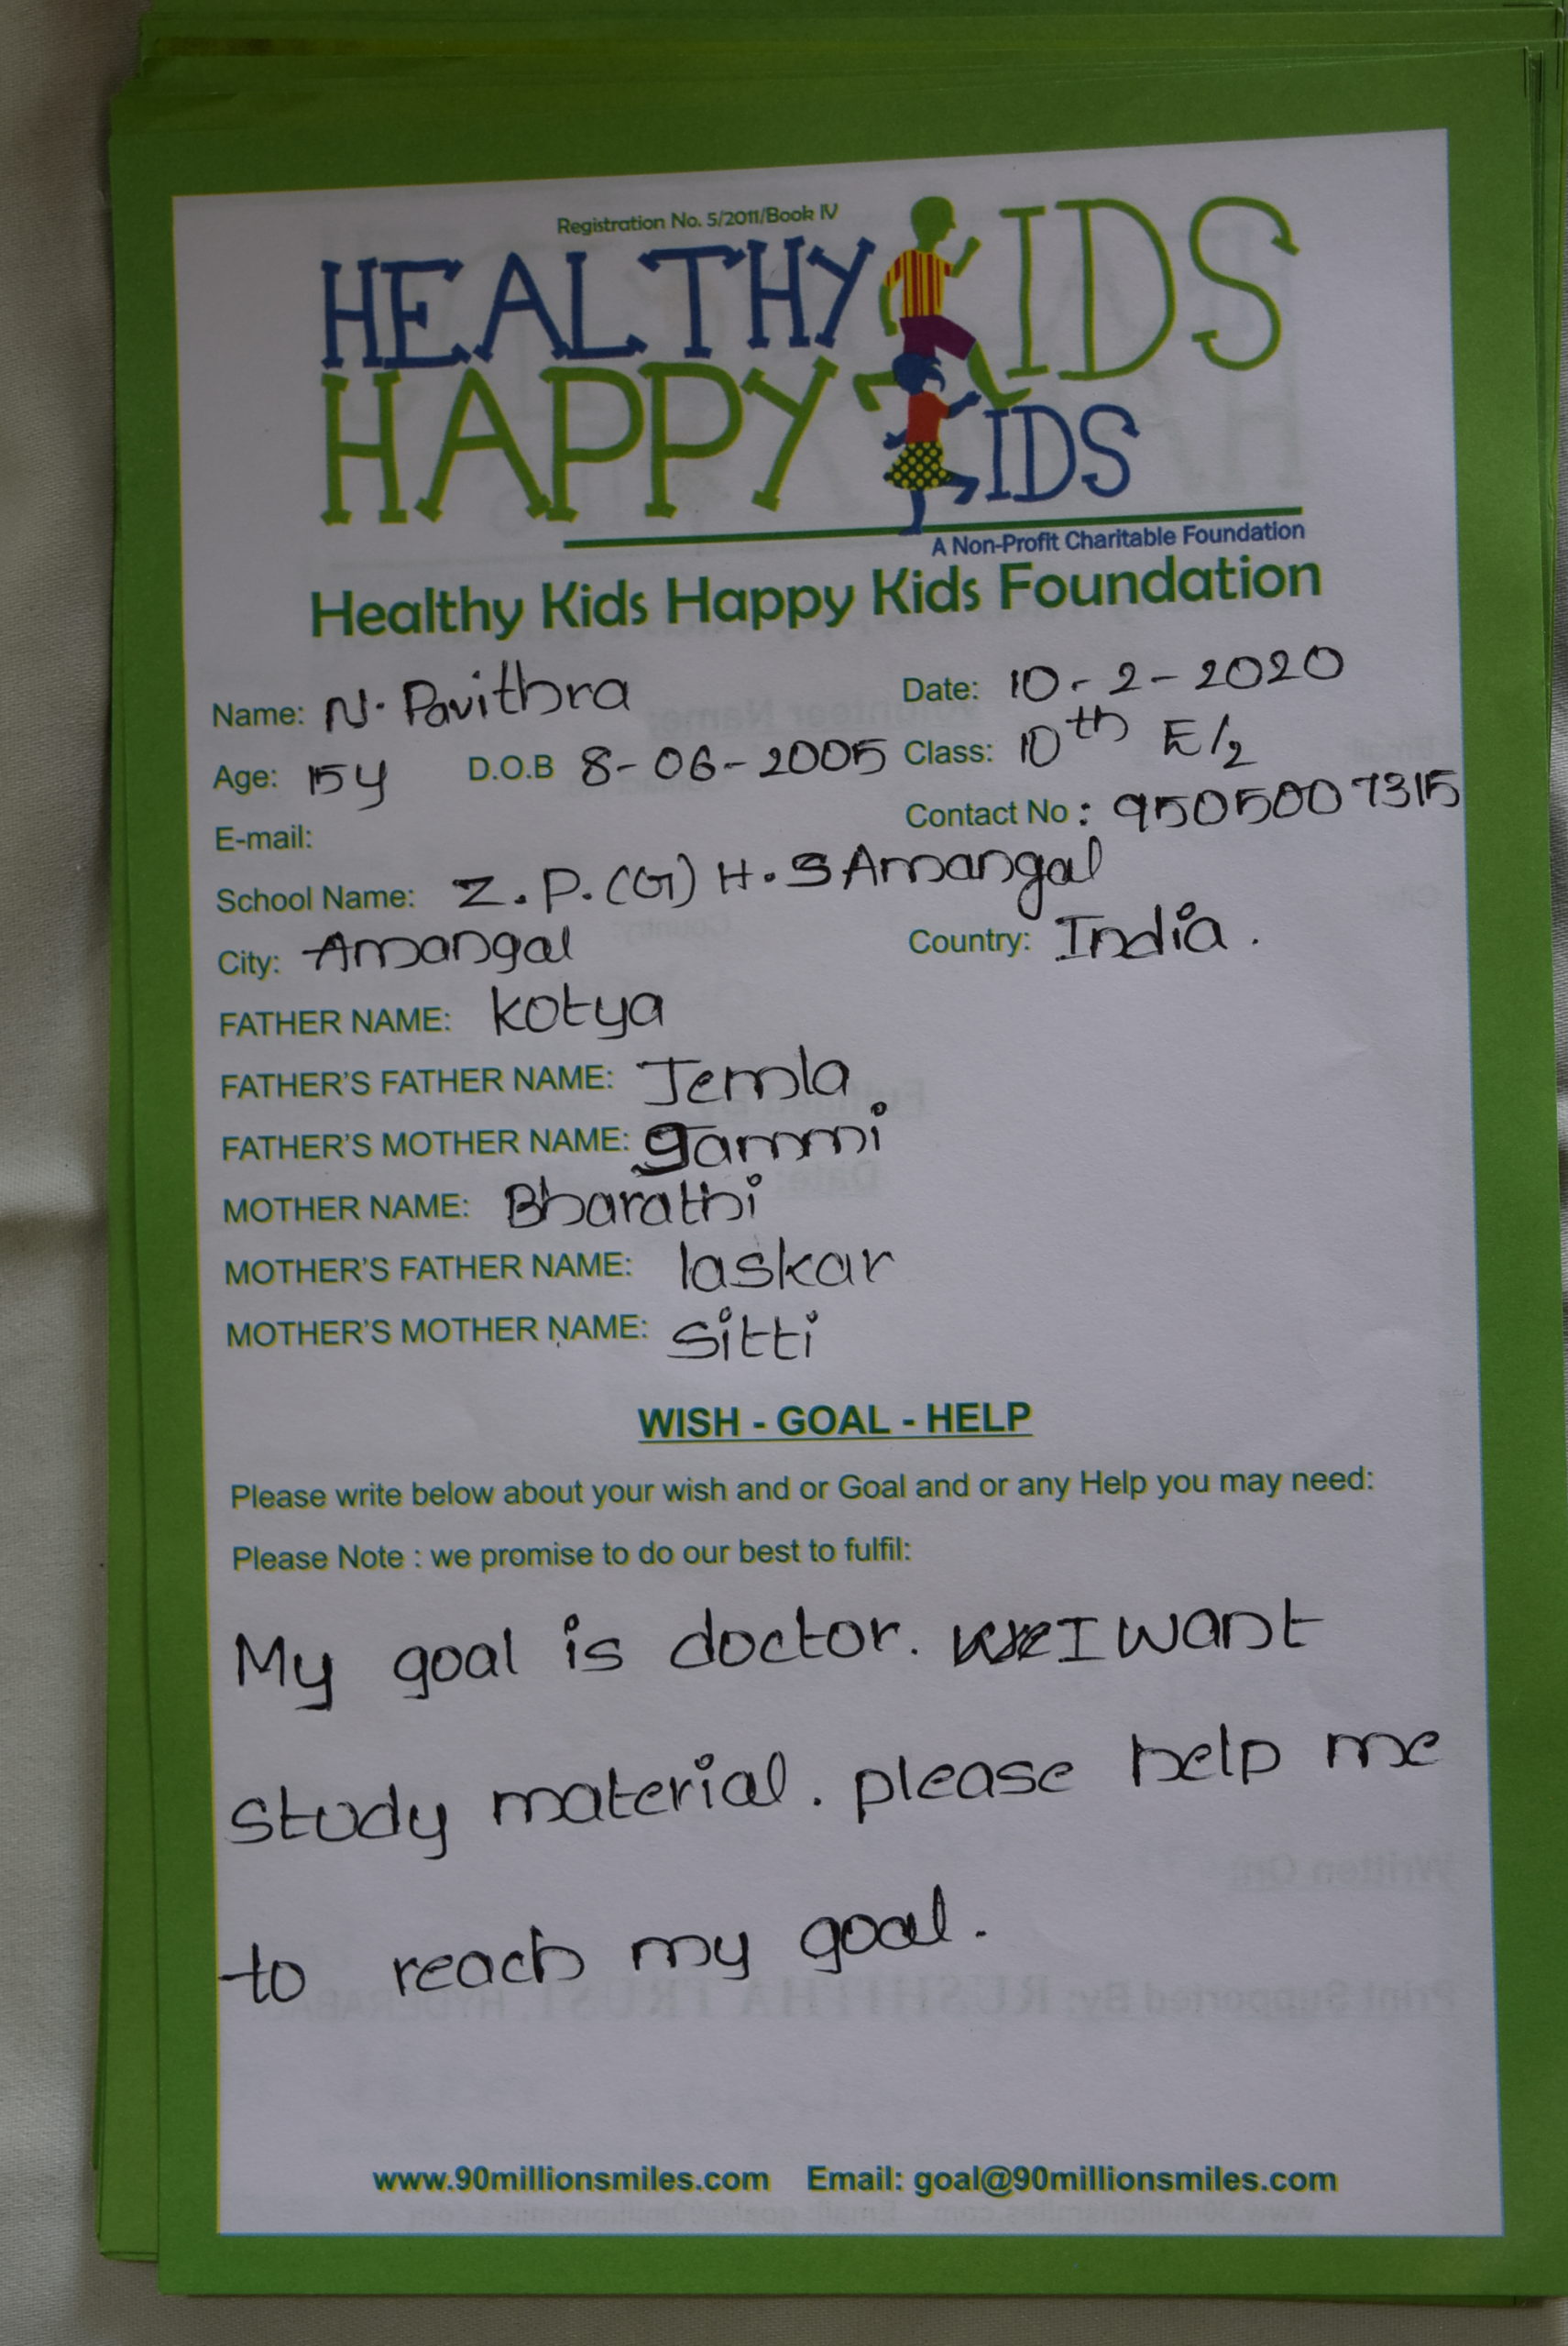 Registration No. 5/2011/Book IV
HEALTHY KIDS
HAPPY KIDS
A Non-Profit Charitable Foundation
Healthy Kids Happy Kids Foundation
Name: N. Pavithra Date: 10-2-2020
Age: 15y D.O.B 8-06-2005 Class: 10th E/2
E-mail: Contact No : 9505007315
School Name: Z.P.(G) H.S Amangal
City: Amangal Country: India.
FATHER NAME: kotya
FATHER'S FATHER NAME: Jemla
FATHER'S MOTHER NAME: gammi
MOTHER NAME: Bharathi
MOTHER'S FATHER NAME: laskar
MOTHER'S MOTHER NAME: Sitti
WISH - GOAL - HELP
Please write below about your wish and or Goal and or any Help you may need:
Please Note : we promise to do our best to fulfil:
My goal is doctor. I want
study material. please help me
to reach my goal.
www.90millionsmiles.com Email: goal@90millionsmiles.com